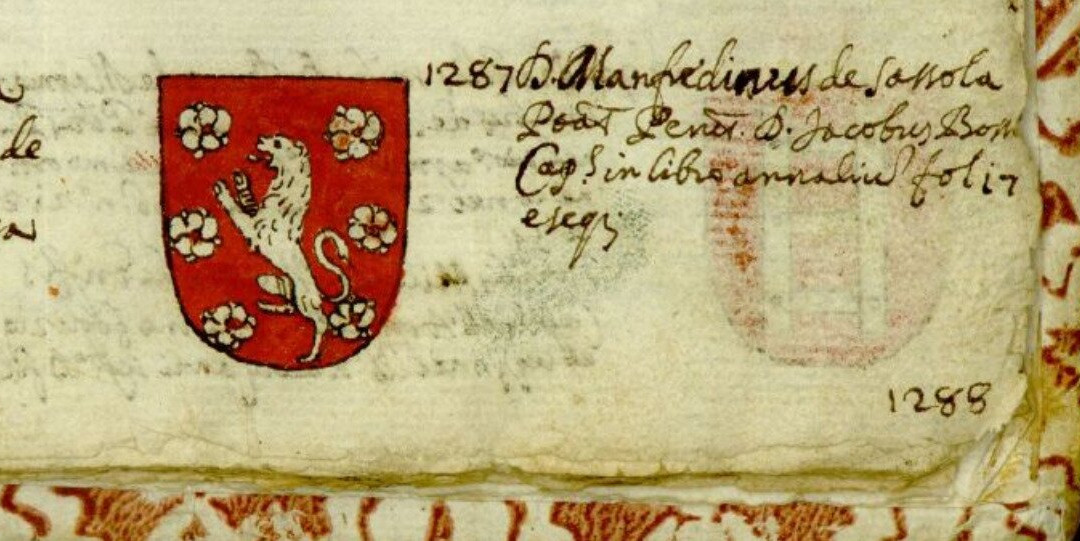 de
1287 D. Manfredinus de Sassola
Po.at Perus. D. Jacobus Bon
Cap.s in libro annaliu fol 17
eseq;
1288